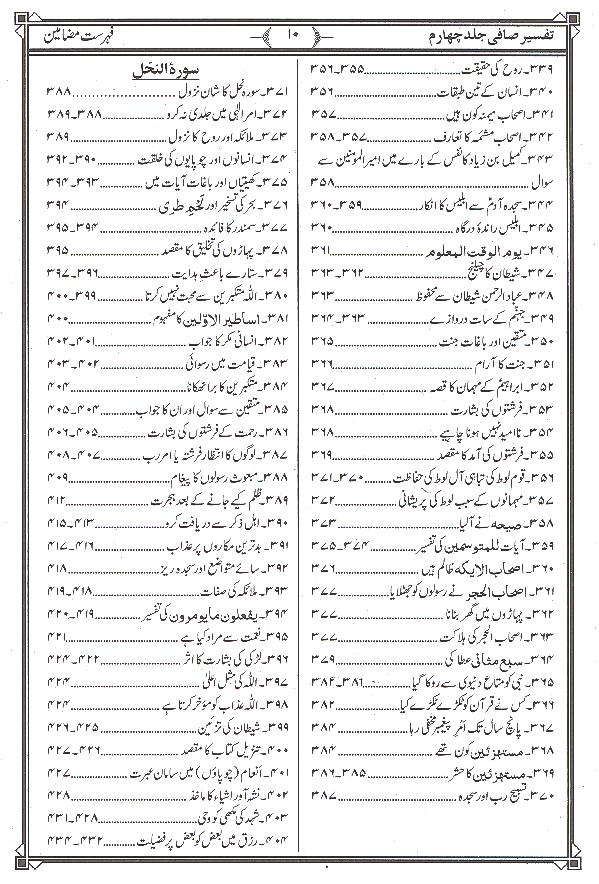 تفسیر صافی جلد چہارم
۱۰
فہرست مضامین
۳۳۹۔ روح کی حقیقت ۳۵۵۔۳۵۶
۳۴۰۔ انسان کے تین طبقات ۳۵۶
۳۴۱۔ اصحاب میمنہ کون ہیں ۳۵۷
۳۴۲۔ اصحاب مشئمہ کا تعارف ۳۵۷۔۳۵۸
۳۴۳۔ کمیل بن زیاد کا نفس کے بارے میں امیر المومنین سے
سوال ۳۵۸
۳۴۴۔ سجدہ آدمؑ سے ابلیس کا انکار ۳۵۹۔۳۶۰
۳۴۵۔ ابلیس راندۂ درگاہ ۳۶۰
۳۴۶۔ یوم الوقت المعلوم ۳۶۱
۳۴۷۔ شیطان کا چیلنج ۳۶۲۔۳۶۳
۳۴۸۔ عباد الرحمن شیطان سے محفوظ ۳۶۳
۳۴۹۔ جہنم کے سات دروازے ۳۶۳۔۳۶۴
۳۵۰۔ متقین اور باغات جنت ۳۶۵
۳۵۱۔ جنت کا آرام ۳۶۶
۳۵۲۔ ابراہیمؑ کے مہمان کا قصہ ۳۶۷
۳۵۳۔ فرشتوں کی بشارت ۳۶۸
۳۵۴۔ ناامید نہیں ہونا چاہیے ۳۶۸
۳۵۵۔ فرشتوں کی آمد کا مقصد ۳۶۹
۳۵۶۔ قوم لوط کی تباہی آل لوط کی حفاظت ۳۷۰۔۳۷۱
۳۵۷۔ مہمانوں کے سبب لوط کی پریشانی ۳۷۲
۳۵۸۔ صیحہ نے آلیا ۳۷۳
۳۵۹۔ آیات للمتوسمین کی تفسیر ۳۷۴۔۳۷۵
۳۶۰۔ اصحاب الایکہ ظالم ہیں ۳۷۶
۳۶۱۔ اصحاب الحجر نے رسولوں کو جھٹلایا ۳۷۷
۳۶۲۔ پہاڑوں میں گھر بنانا ۳۷۷
۳۶۳۔ اصحاب الحجر کی ہلاکت ۳۷۷
۳۶۴۔ سبع مثانی عطا کی ۳۷۹
۳۶۵۔ نبی کو متاع دنیوی سے روکا گیا ۳۸۱۔۳۸۶
۳۶۶۔ کس نے قرآن کو ٹکڑے ٹکڑے کیا ۳۸۲
۳۶۷۔ پانچ سال تک امر پیغمبر مخفی رہا ۳۸۴
۳۶۸۔ مستہزئین کون تھے ۳۸۴
۳۶۹۔ مستہزئین کا حشر ۳۸۵۔۳۸۶
۳۷۰۔ تسبیح رب اور سجدہ ۳۸۷
سورۃ النحل
۳۷۱۔ سورہ نحل کا شان نزول ۳۸۸
۳۷۲۔ امر الٰہی میں جلدی نہ کرو ۳۸۸۔۳۸۹
۳۷۳۔ ملائکہ اور روح کا نزول ۳۸۹
۳۷۴۔ انسانوں اور چوپایوں کی خلقت ۳۹۰۔۳۹۲
۳۷۵۔ کھیتیاں اور باغات آیات میں ۳۹۳۔۳۹۴
۳۷۶۔ بحر کی تسخیر اور لحم طری ۳۹۴
۳۷۷۔ سمندر کا فائدہ ۳۹۴۔۳۹۵
۳۷۸۔ پہاڑوں کی تخلیق کا مقصد ۳۹۵
۳۷۹۔ ستارے باعث ہدایت ۳۹۶۔۳۹۷
۳۸۰۔ اللہ متکبرین سے محبت نہیں کرتا ۳۹۹۔۴۰۰
۳۸۱۔ اساطیر الاوّلین کا مفہوم ۴۰۰
۳۸۲۔ انسانی مکر کا جواب ۴۰۱۔۴۰۲
۳۸۳۔ قیامت میں رسوائی ۴۰۲۔۴۰۳
۳۸۴۔ متکبرین کا برا ٹھکانا ۴۰۴
۳۸۵۔ متقین سے سوال اور ان کا جواب ۴۰۴۔۴۰۵
۳۸۶۔ رحمت کے فرشتوں کی بشارت ۴۰۵۔۴۰۶
۳۸۷۔ لوگوں کا انتظار فرشتہ یا امر رب ۴۰۷۔۴۰۸
۳۸۸۔ مبعوث رسولوں کا پیغام ۴۰۹
۳۸۹۔ ظلم کیے جانے کے بعد ہجرت ۴۱۲
۳۹۰۔ اہل ذکر سے دریافت کرو ۴۱۳۔۴۱۵
۳۹۱۔ بدترین مکاروں پر عذاب ۴۱۶۔۴۱۷
۳۹۲۔ سائے متواضع اور سجدہ ریز ۴۱۸
۳۹۳۔ ملائکہ کی صفات ۴۱۸۔۴۱۹
۳۹۴۔ یفعلون مایومرون کی تفسیر ۴۱۹۔۴۲۰
۳۹۵۔ نعمت سے مراد کیا ہے ۴۲۱
۳۹۶۔ لڑکی کی بشارت کا اثر ۴۲۲۔۴۲۴
۳۹۷۔ اللہ کی مثل اعلیٰ ۴۲۴
۳۹۸۔ اللہ عذاب کو مؤخر کرتا ہے ۴۲۴
۳۹۹۔ شیطان کی تزئین ۴۲۵۔۴۲۶
۴۰۰۔ تنزیل کتاب کا مقصد ۴۲۶۔۴۲۷
۴۰۱۔ انعام (چوپاؤں) میں سامان عبرت ۴۲۷
۴۰۲۔ نشہ آور اشیاء کا ماخذ ۴۲۸
۴۰۳۔ شہد کی مکھی کو وحی ۴۲۸۔۴۳۱
۴۰۴۔ رزق میں بعض کو بعض پر فضیلت ۴۳۲۔۴۳۴